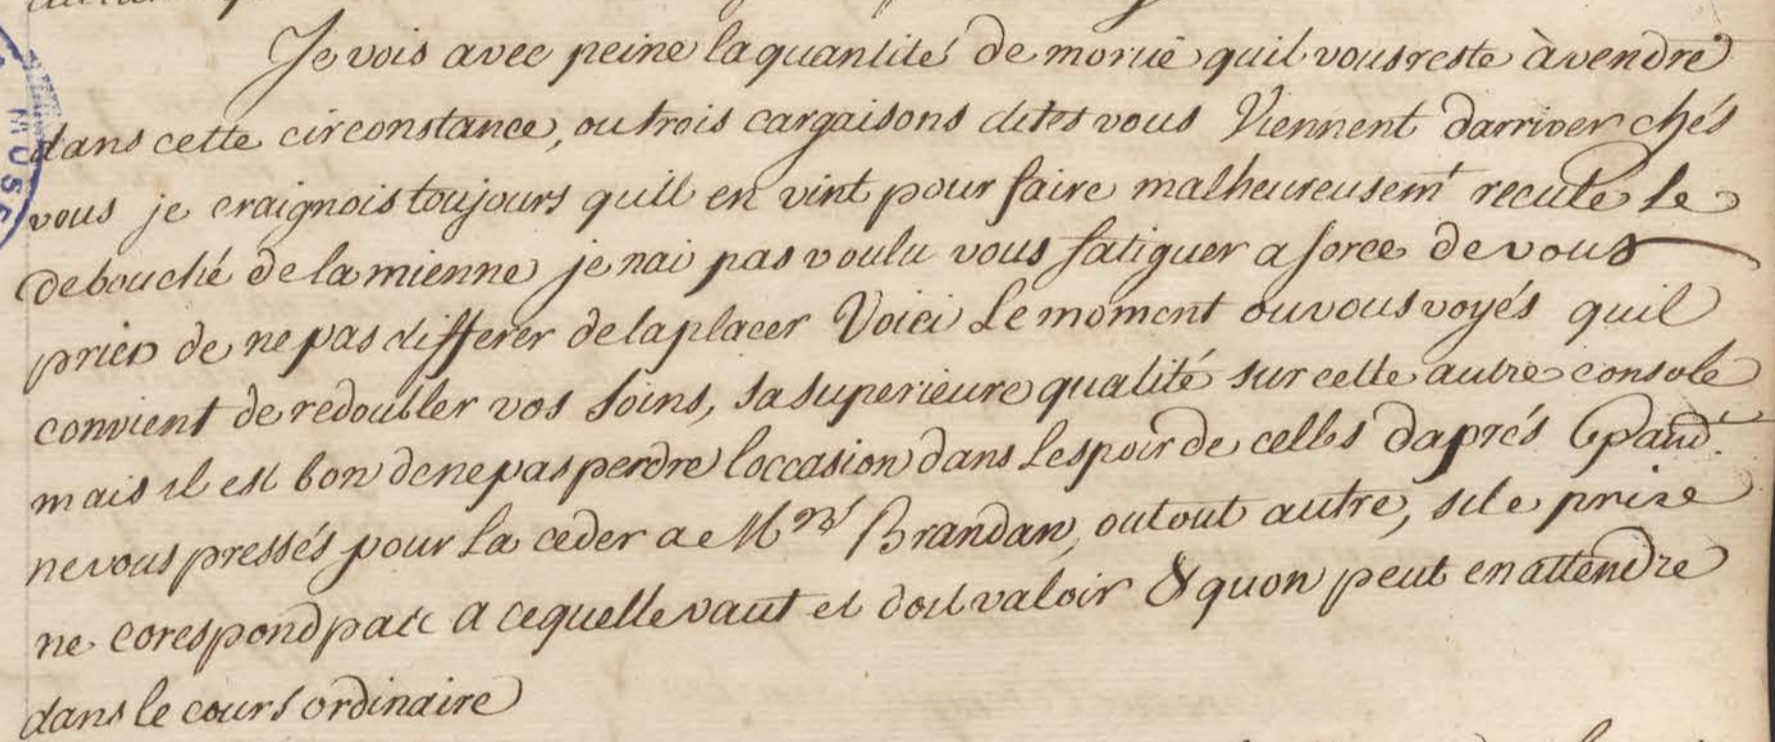 Je vois avec peine la quantité de moruë quil vous reste à vendre
dans cette circonstance, ou trois cargaisons dites vous Viennent darriver chés
vous je craignois toujours quill en vint pour faire malheureusemt reculé le
debouché de la mienne je nai pas voulu vous fatiguer a force de vous
prier de ne pas differer de la placer Voici Le moment ou vous voyés quil
convient de redoubler vos soins, sa superieure qualité sur cette autre console
mais il est bon de ne pas perdre loccasion dans Lespoir de celles daprés
ne vous pressés pour La ceder a Mrs Brandam, ou tout autre, si le prixe
ne corespond pas a ce quelle vaut et doit valoir & quon peut en attendre
dans le cours ordinaire
MUSE